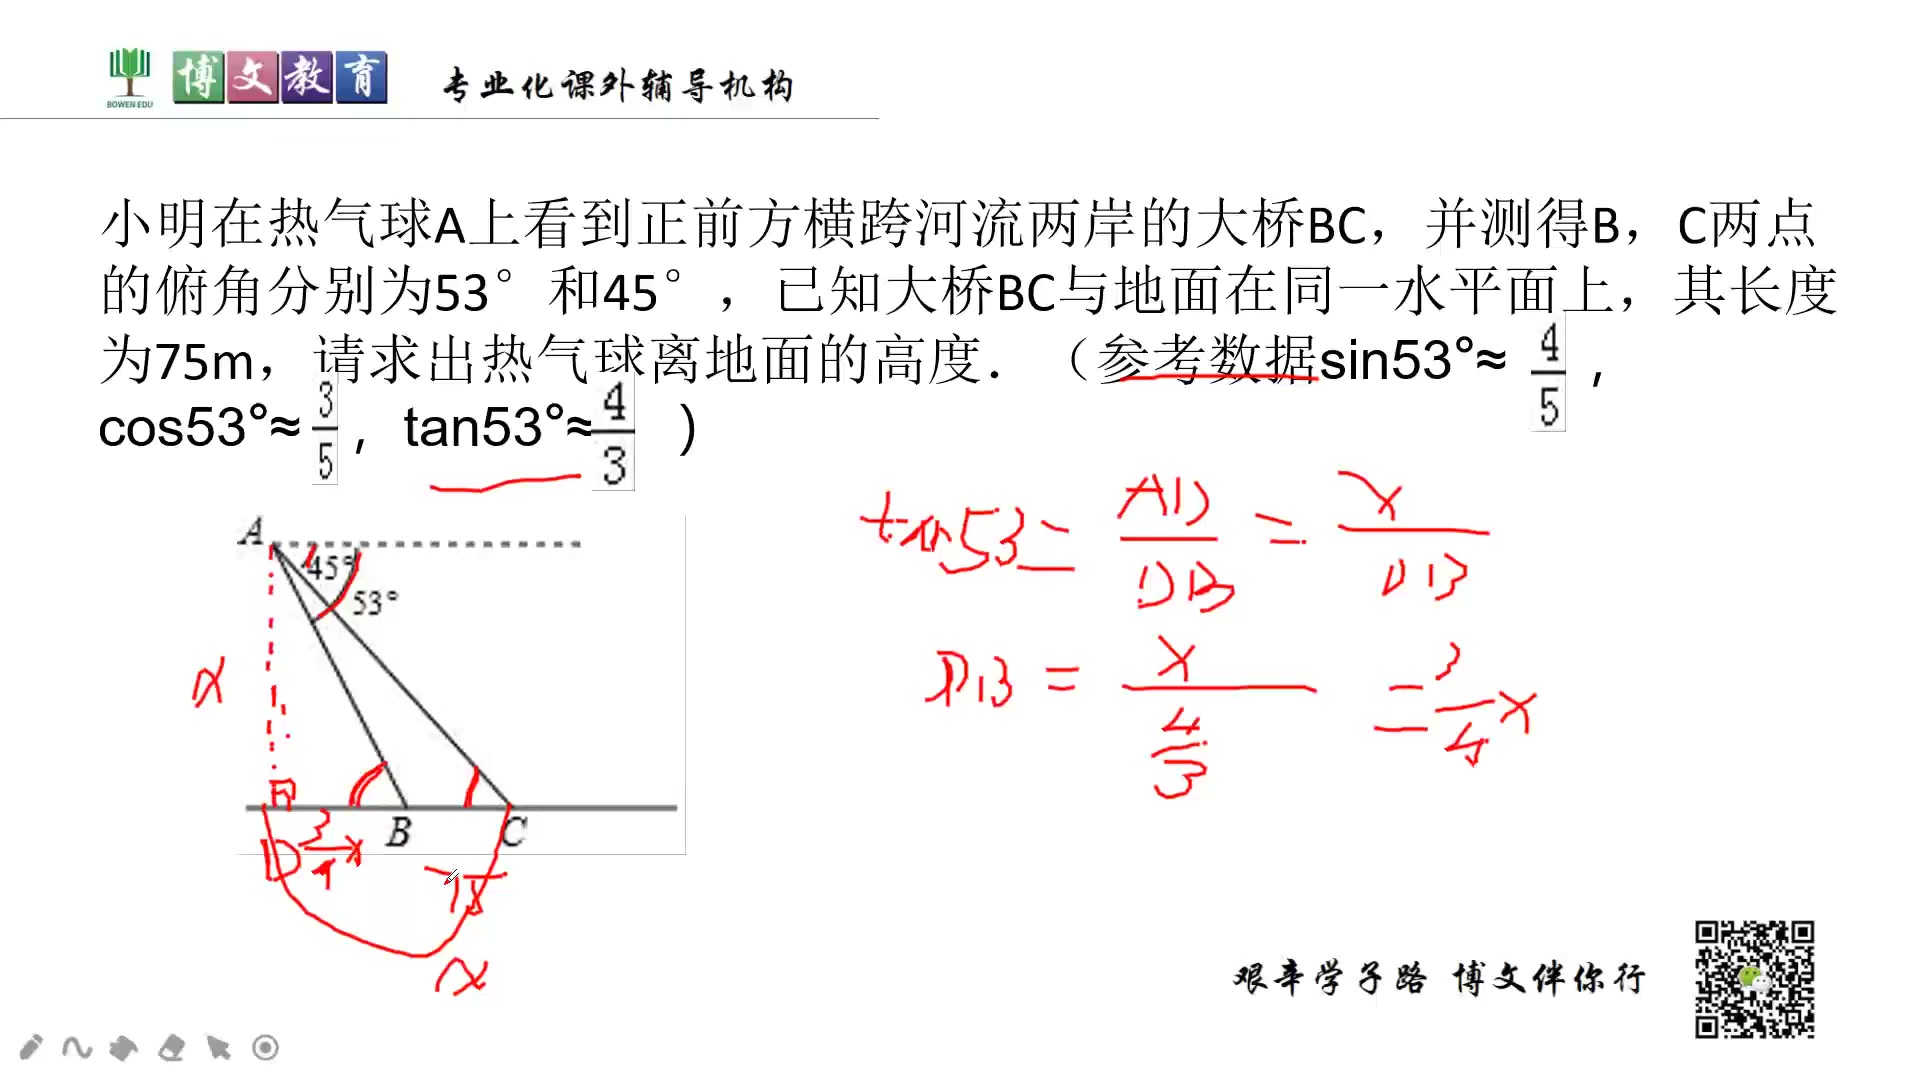 BOWEN EDU
博文教育
专业化课外辅导机构
小明在热气球A上看到正前方横跨河流两岸的大桥BC，并测得B，C两点
的俯角分别为53°和45°，已知大桥BC与地面在同一水平面上，其长度
为75m，请求出热气球离地面的高度．（参考数据sin53°≈ 4/5 ，
cos53°≈ 3/5 ，tan53°≈ 4/3 ）
A
45°
53°
x
B
C
D 3/4 x
75
x
tan53 = AD/DB = x/DB
DB = x/(4/3) = 3/4 x
艰辛学子路 博文伴你行